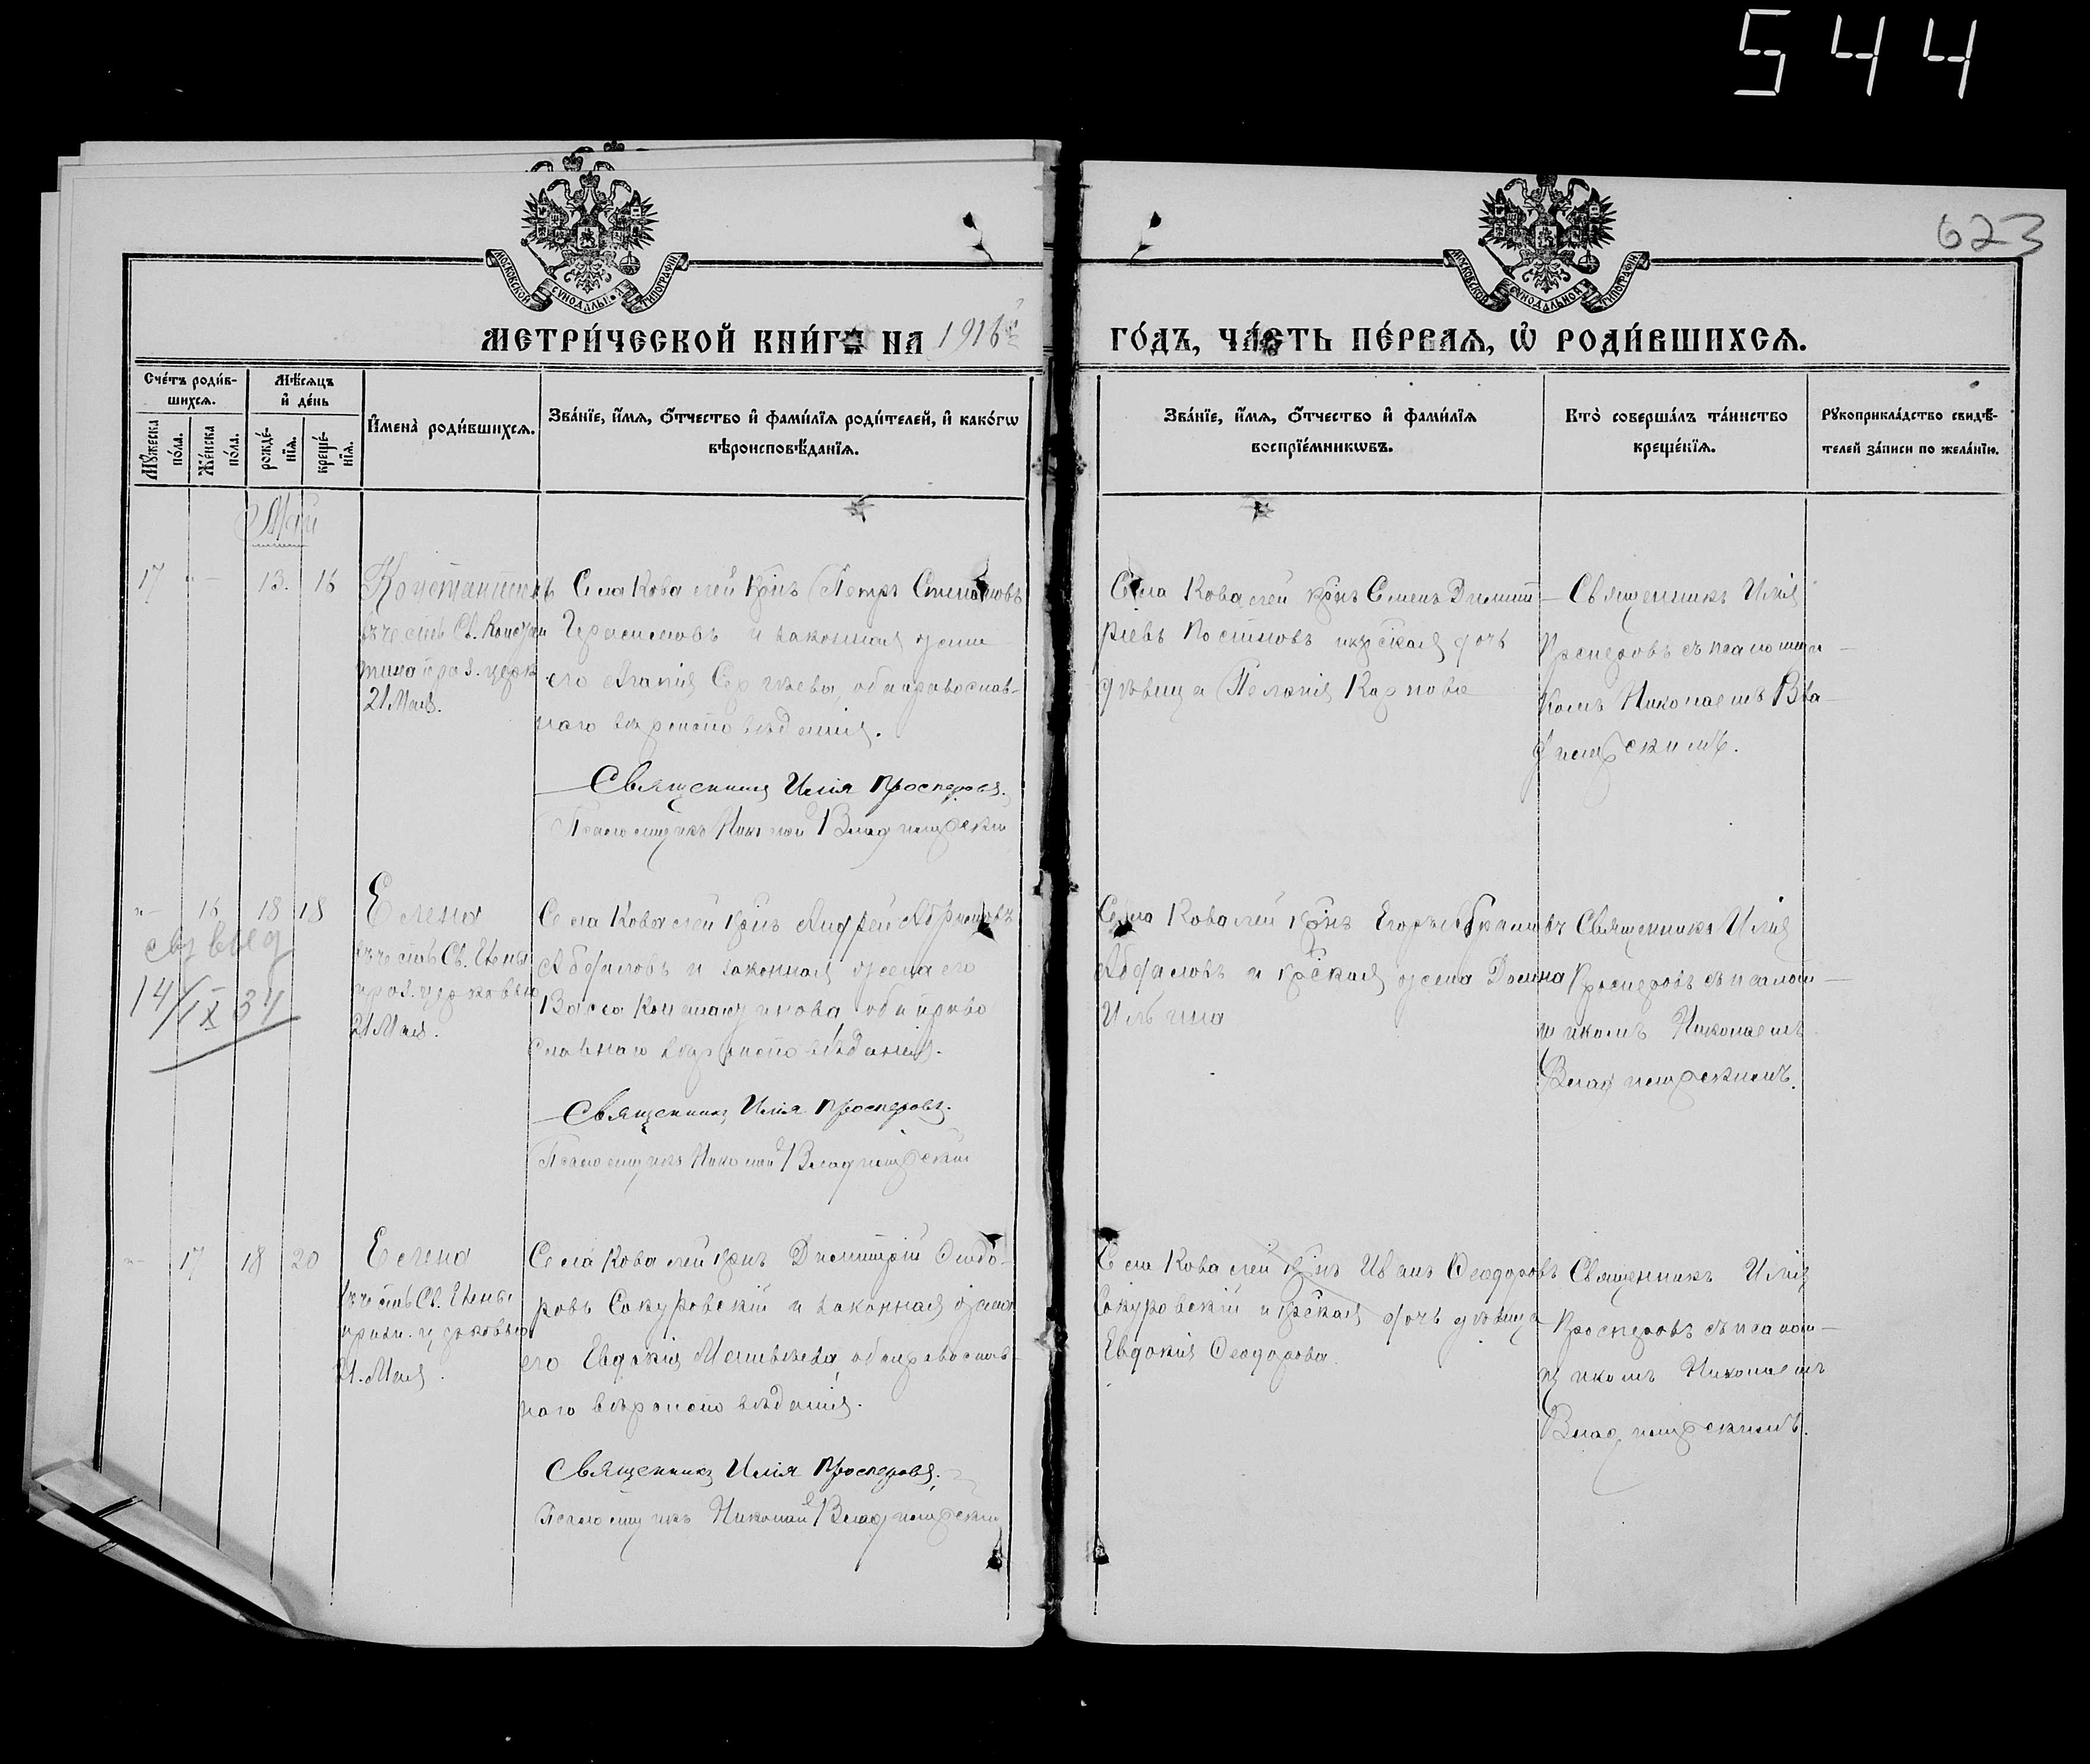 544
623
МОСКОВСКОЙ СѴНОДАЛЬНОЙ ТИПОГРАФІИ
МОСКОВСКОЙ СѴНОДАЛЬНОЙ ТИПОГРАФІИ
МЕТРИ́ЧЕСКОЙ КНИ́ГИ НА 1916й
ГО́ДЪ, ЧА́СТЬ ПЕ́РВАѦ, Ѽ РОДИ́ВШИХСѦ.
Сче́тъ роди́в-
шихсѧ.
Мѣ́сѧцъ
и҆ де́нь
Мꙋ́жеска
по́ла.
Же́нска
по́ла.
рожде́-
нїѧ.
креще́-
нїѧ.
И҆мена̀ роди́вшихсѧ.
Зва́нїе, и҆́мѧ, ѻ҆́тчество и҆ фами́лїѧ роди́телей, и҆ како́гѡ
вѣроисповѣ́данїѧ.
Зва́нїе, и҆́мѧ, ѻ҆́тчество и҆ фами́лїѧ
воспрїе́мникѡвъ.
Кто̀ соверша́лъ та́инство
креще́нїѧ.
Рꙋкоприкла́дство свидѣ́-
телей за́писи по жела́нїю.
Май
17 "- 13. 16
Константинъ
въ честь Св. Конст
праз. церк.
21 Мая.
Села Ковалей крнъ Петръ Степановъ
Герасимовъ и законная жена
его Агапія Сергѣева, оба православ-
наго вѣроисповѣданія.
Священникъ Илія Просперовъ.
Псаломщикъ Николай
Села Ковалей крнъ Семенъ Димит-
ріевъ Постновъ и крская дочь
дѣвица Пелагія Карпова
Священникъ Илія
Просперовъ съ псаломщи-
комъ Николаемъ
"- 16 18 18
14/IX 34
Елена
въ честь Св. Елены
праз. церковью
21 Мая.
Села Ковалей крнъ Андрей Абрамовъ
Абдаловъ и законная жена его
Васса Константинова оба право
славнаго вѣроисповѣданія.
Священникъ Илія Просперовъ.
Псаломщикъ Николай
Села Ковалей крнъ Егоръ Абрамовъ
Абдаловъ и крская жена Домна
Ильина
Священникъ Илія
Просперовъ съ псалом-
щикомъ Николаемъ
"- 17 18 20
Елена
въ честь Св. Елены
празн. церковью
21. Мая.
Села Ковалей крнъ Димитрій Ѳеодо-
ровъ Сокуровскій и законная жена
его Евдокія Матвѣева, оба православ-
наго вѣроисповѣданія.
Священникъ Илія Просперовъ.
Псаломщикъ Николай
Села Ковалей крнъ Иванъ Ѳеодоровъ
Сокуровскій и крская дочь дѣвица
Евдокія Ѳеодорова.
Священникъ Илія
Просперовъ съ псалом-
щикомъ Николаемъ